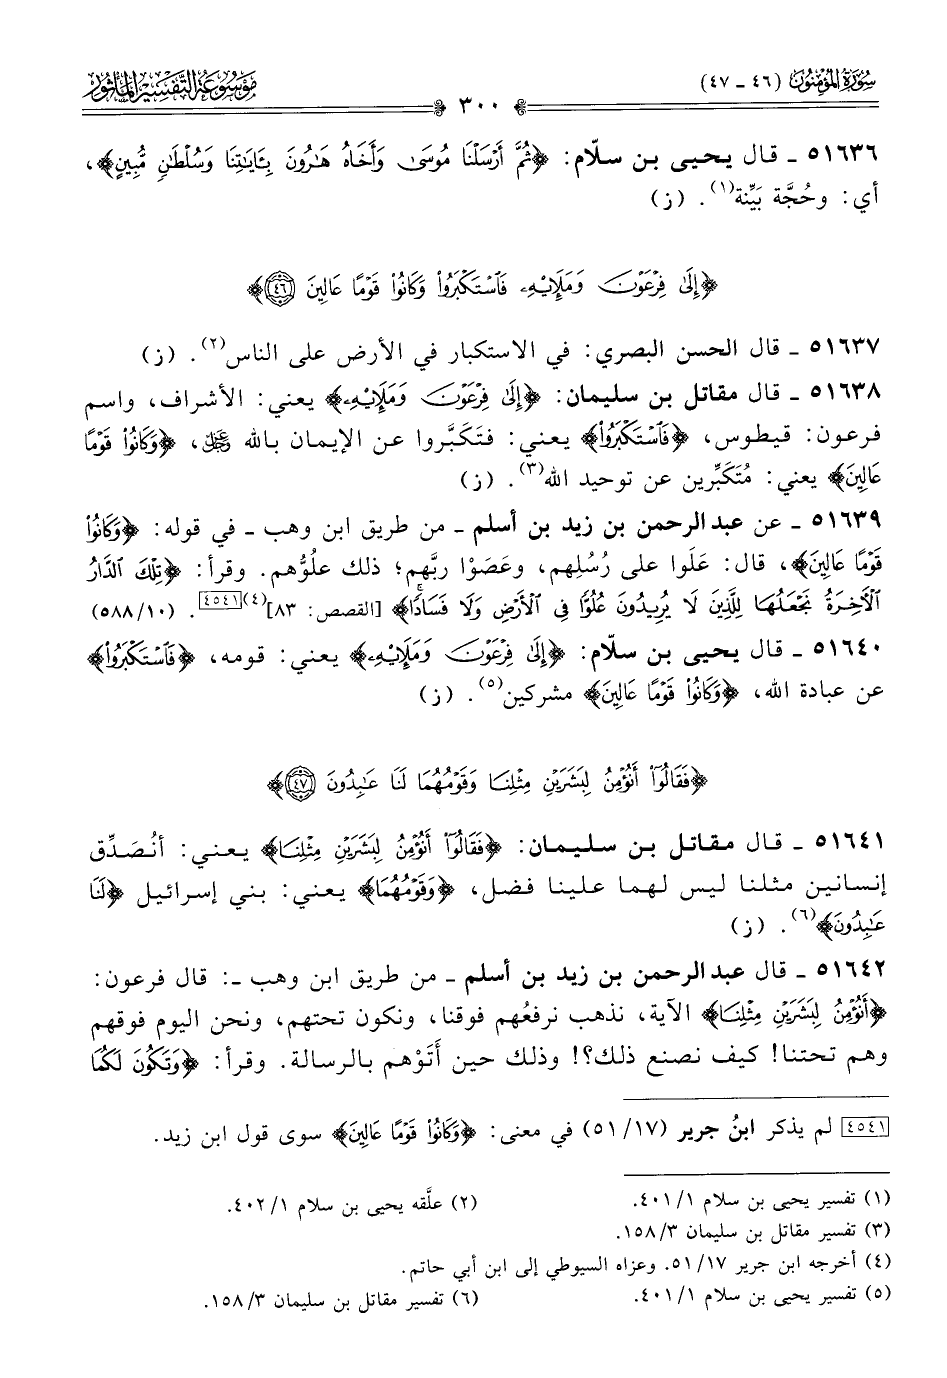 سُورَةُ المُؤْمِنُونَ (٤٦ - ٤٧)
مَوْسُوعَة التَّفْسِيرِ المَأْثُور
٣٠٠
٥١٦٣٦ - قال يحيى بن سلّام: ﴿ثُمَّ أَرْسَلْنَا مُوسَىٰ وَأَخَاهُ هَٰرُونَ بِـَٔايَٰتِنَا وَسُلْطَٰنٍ مُّبِينٍ﴾،
أي: وحُجَّة بَيِّنة(١). (ز)
﴿إِلَىٰ فِرْعَوْنَ وَمَلَإِيْهِۦ فَٱسْتَكْبَرُوا۟ وَكَانُوا۟ قَوْمًا عَالِينَ ٤٦﴾
٥١٦٣٧ - قال الحسن البصري: في الاستكبار في الأرض على الناس(٢). (ز)
٥١٦٣٨ - قال مقاتل بن سليمان: ﴿إِلَىٰ فِرْعَوْنَ وَمَلَإِيْهِۦ﴾ يعني: الأشراف، واسم
فرعون: قيطوس، ﴿فَٱسْتَكْبَرُوا۟﴾ يعني: فتَكَبَّروا عن الإيمان بالله عَزَّوَجَلَّ، ﴿وَكَانُوا۟ قَوْمًا
عَالِينَ﴾ يعني: مُتَكَبِّرين عن توحيد الله(٣). (ز)
٥١٦٣٩ - عن عبد الرحمن بن زيد بن أسلم - من طريق ابن وهب - في قوله: ﴿وَكَانُوا۟
قَوْمًا عَالِينَ﴾، قال: عَلَوا على رُسُلِهم، وعَصَوْا ربَّهم؛ ذلك علوُّهم. وقرأ: ﴿تِلْكَ ٱلدَّارُ
ٱلْـَٔاخِرَةُ نَجْعَلُهَا لِلَّذِينَ لَا يُرِيدُونَ عُلُوًّا فِى ٱلْأَرْضِ وَلَا فَسَادًا﴾ [القصص: ٨٣](٤)[٤٥٤١]. (١٠/ ٥٨٨)
٥١٦٤٠ - قال يحيى بن سلّام: ﴿إِلَىٰ فِرْعَوْنَ وَمَلَإِيْهِۦ﴾ يعني: قومه، ﴿فَٱسْتَكْبَرُوا۟﴾
عن عبادة الله، ﴿وَكَانُوا۟ قَوْمًا عَالِينَ﴾ مشركين(٥). (ز)
﴿فَقَالُوٓا۟ أَنُؤْمِنُ لِبَشَرَيْنِ مِثْلِنَا وَقَوْمُهُمَا لَنَا عَٰبِدُونَ ٤٧﴾
٥١٦٤١ - قال مقاتل بن سليمان: ﴿فَقَالُوٓا۟ أَنُؤْمِنُ لِبَشَرَيْنِ مِثْلِنَا﴾ يعني: أنُصَدِّق
إنسانين مثلنا ليس لهما علينا فضل، ﴿وَقَوْمُهُمَا﴾ يعني: بني إسرائيل ﴿لَنَا
عَٰبِدُونَ﴾(٦). (ز)
٥١٦٤٢ - قال عبد الرحمن بن زيد بن أسلم - من طريق ابن وهب -: قال فرعون:
﴿أَنُؤْمِنُ لِبَشَرَيْنِ مِثْلِنَا﴾ الآية، نذهب نرفعُهم فوقنا، ونكون تحتهم، ونحن اليوم فوقهم
وهم تحتنا! كيف نصنع ذلك؟! وذلك حين أَتَوْهم بالرسالة. وقرأ: ﴿وَتَكُونَ لَكُمَا
[٤٥٤١] لم يذكر ابنُ جرير (١٧/ ٥١) في معنى: ﴿وَكَانُوا۟ قَوْمًا عَالِينَ﴾ سوى قول ابن زيد.
(١) تفسير يحيى بن سلام ١/ ٤٠١.
(٢) علَّقه يحيى بن سلام ١/ ٤٠٢.
(٣) تفسير مقاتل بن سليمان ٣/ ١٥٨.
(٤) أخرجه ابن جرير ١٧/ ٥١. وعزاه السيوطي إلى ابن أبي حاتم.
(٥) تفسير يحيى بن سلام ١/ ٤٠١.
(٦) تفسير مقاتل بن سليمان ٣/ ١٥٨.